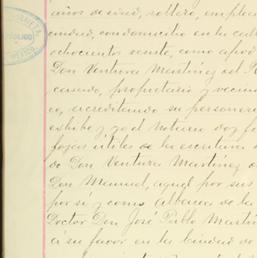 años de edad, soltero, emplea
ciudad, con domicilio en la call
ochocientos sesenta, como apod
Don Ventura Martínez del R
casado, propietario y vecino
co, acreditando su personer
exhibe y yo el Notario doy f
fojas útiles de la escritura
do Don Ventura Martínez
Don Manuel, aquel por sus
por sí y como Albacea de la
Doctor Don José Pablo Martín
a su favor en la Ciudad de